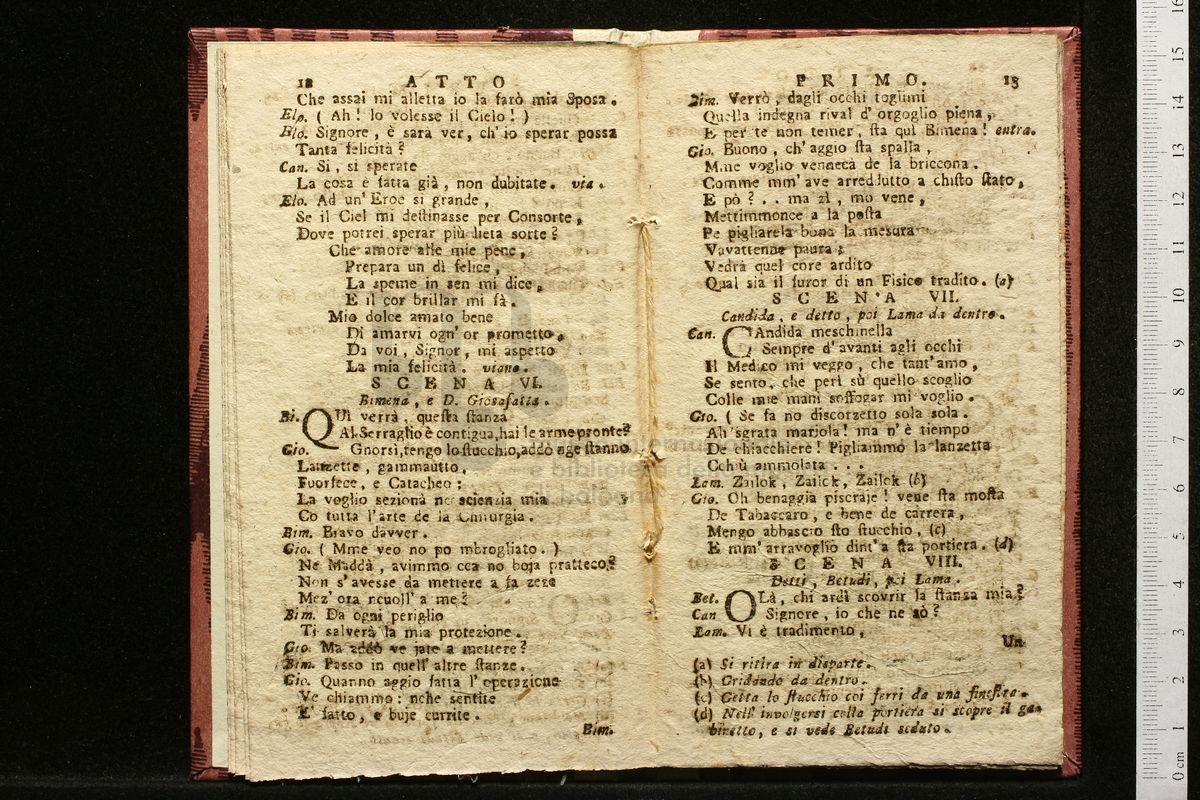 12 ATTO
Che assai mi alletta io la farò mia Sposa.
Elo. ( Ah! lo volesse il Cielo! )
Elo. Signore, è sarà ver, ch' io sperar possa
Tanta felicità?
Can. Si, si sperate
La cosa è fatta già, non dubitate. via.
Elo. Ad un' Eroe si grande,
Se il Ciel mi destinasse per Consorte,
Dove potrei sperar più lieta sorte?
Che amore alle mie pene,
Prepara un dì felice,
La speme in sen mi dice,
E il cor brillar mi fà.
Mio dolce amato bene
Di amarvi ogn' or prometto.
Da voi, Signor, mi aspetto
La mia felicità. viano.
SCENA VI.
Bimena, e D. Giosafatta.
Bi. QUì verrà, questa stanza
Al Serraglio è contigua, hai le arme pronte?
Gio. Gnorsì, tengo lo stucchio, addò nge stanno
Lanzette, gammautto,
Fuorfece, e Catacheo:
La voglio sezionà pe scienzia mia
Co tutta l'arte de la Chirurgia.
Bim. Bravo davver.
Gio. ( Mme veo no po mbrogliato. )
Ne Maddà, avimmo cca no boja pratteco?
Non s'avesse da mettere a fa zeze
Mez' ora ncuoll' a me?
Bim. Da ogni periglio
Ti salverà la mia protezione.
Gio. Ma addò ve jate a mettere?
Bim. Passo in quell' altre stanze.
Gio. Quanno aggio fatta l' operazione
Ve chiammo: nche sentite
E' fatto, e buje currite.
Bim.
PRIMO. 13
Bim. Verrò, dagli occhi toglimi
Quella indegna rival d' orgoglio piena,
E per te non temer, sta quì Bimena! entra.
Gio. Buono, ch' aggio sta spalla,
Mme voglio venneca de la briccona.
Comme mm' ave arreddutto a chisto stato,
E pò?.. ma zì, mo vene,
Mettimmonce a la posta
Pe pigliarela bona la mesura
Vavattenne paura;
Vedrà quel core ardito
Qual sia il furor di un Fisico tradito. (a)
SCENA VII.
Candida, e detto, poi Lama da dentro.
Can. CAndida meschinella
Sempre d' avanti agli occhi
Il Medico mi veggo, che tant' amo,
Se sento, che perì sù quello scoglio
Colle mie mani soffogar mi voglio.
Gio. ( Se fa no discorzetto sola sola.
Ah sgrata mariola! ma n' è tiempo
De chiacchiere! Pigliammo la lanzetta
Cchiù ammolata...
Lam. Zailok, Zailck, Zailok (b)
Gio. Oh benaggia piscraje! vene sta mosta
De Tabaccaro, e bene de carrera,
Mengo abbascio sto stucchio, (c)
E mm' arravoglio dint' a sta portiera. (d)
SCENA VIII.
Detti, Betudi, poi Lama.
Bet. OLà, chi ardì scovrir la stanza mia?
Can Signore, io che ne sò?
Lam. Vi è tradimento,
Un
(a) Si ritira in disparte.
(b) Gridando da dentro.
(c) Getta lo stucchio coi ferri da una finestra.
(d) Nell' involgersi colla portiera si scopre il gabinetto, e si vede Betudi seduto.